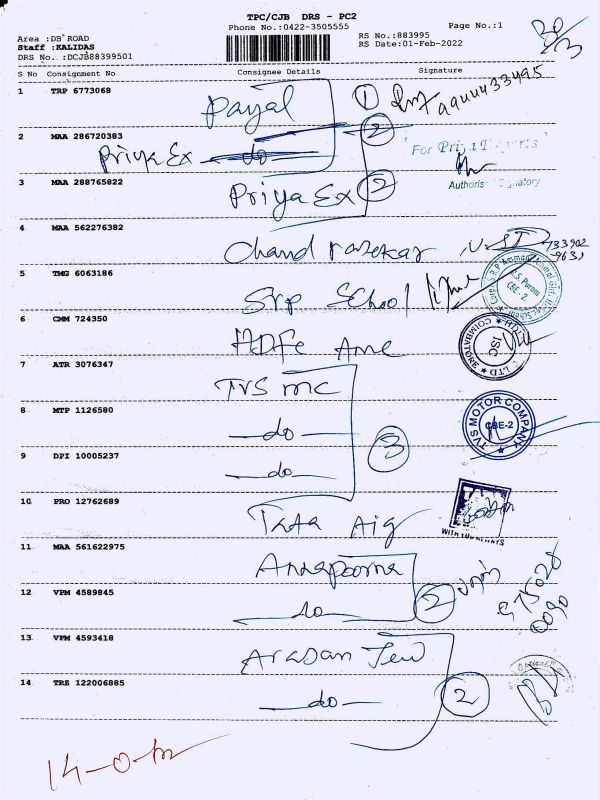 TPC/CJB DRS - PC2
Phone No.:0422-3505555
Page No.:1
Area :DB ROAD
RS No.:883995
Staff :KALIDAS
RS Date:01-Feb-2022
DRS No. :DCJB88399501
S No Consignment No Consignee Details Signature
1 TRP 6773068 Payal 1
2 MAA 286720383 Priya Ex do 2
For Priya
3 MAA 288765822 Priya Ex 2
Authoris Signatory
4 MAA 562276382 Chand rasekar
5 TMG 6063186 Srp School
6 CMM 724350 HDFC Amc
7 ATR 3076347 TVS mc
8 MTP 1126580 do 3
TVS MOTOR COMPANY
CBE-2
9 DPI 10005237 do
10 PRO 12762689 Tata Aig
11 MAA 561622975 Annapoorna
12 VPM 4589845 do 2
13 VPM 4593418 Arasan Jew
14 TRZ 122006885 do 2